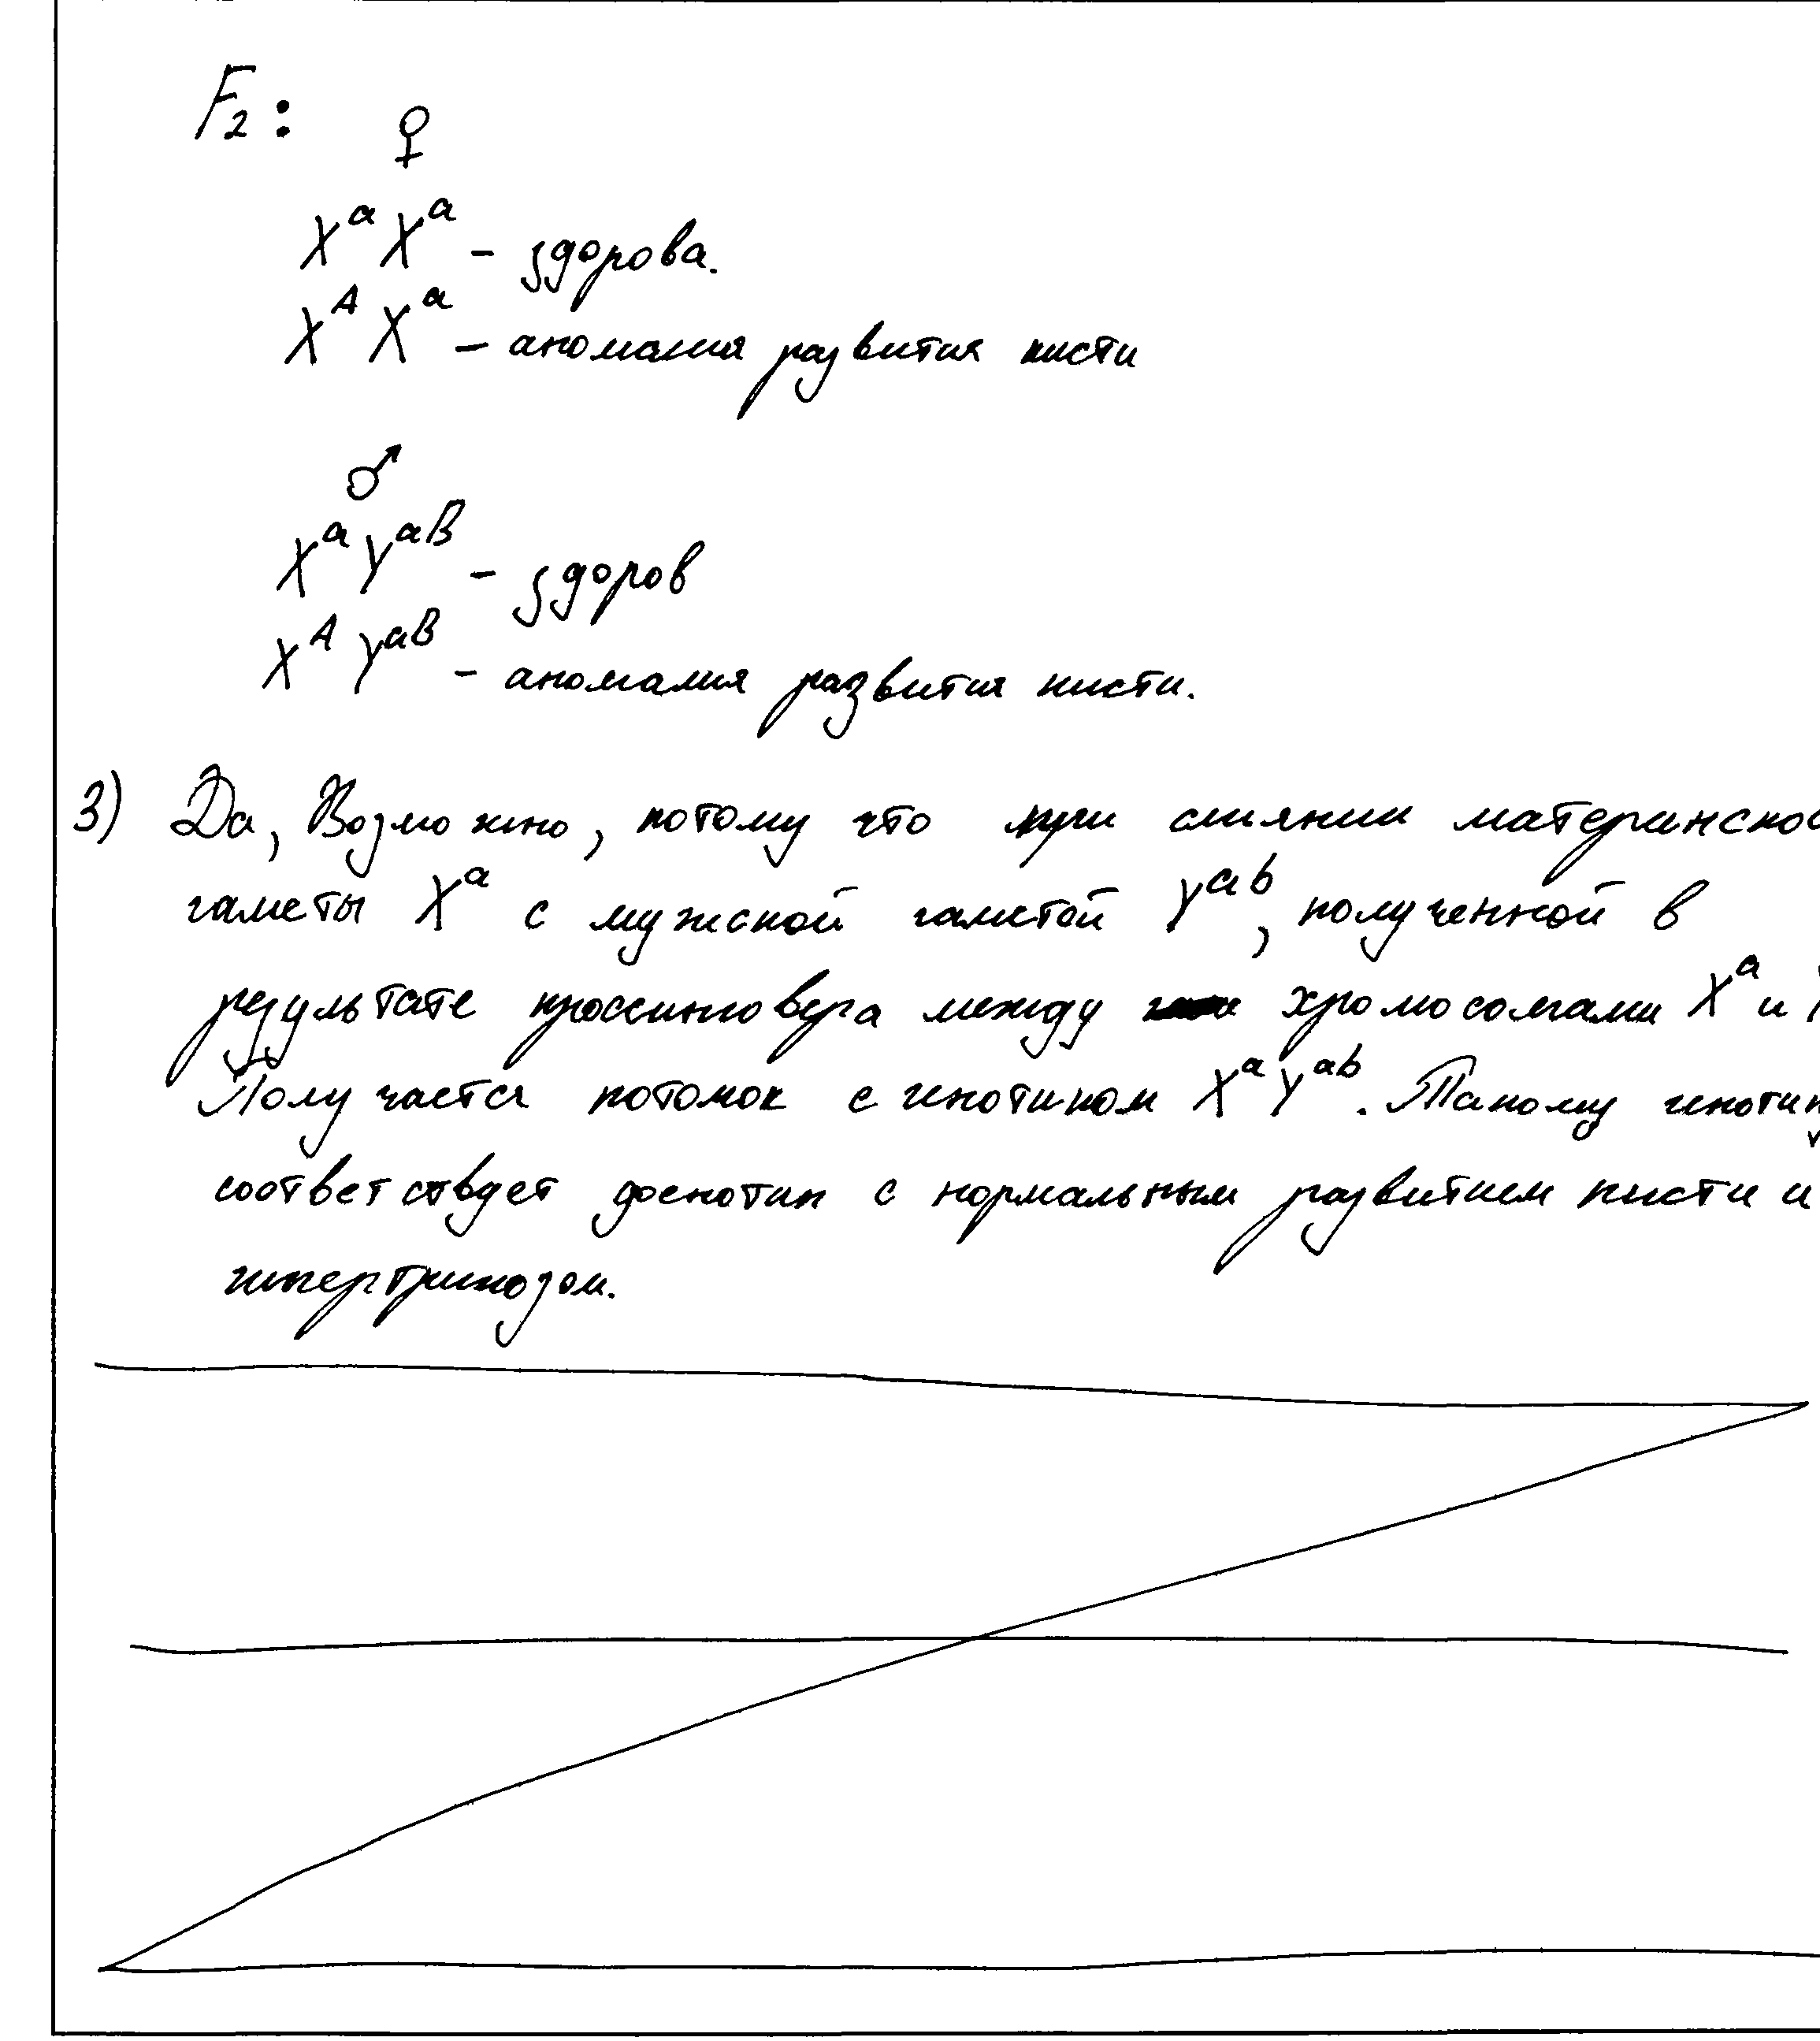 F₂:
♀
XᵃXᵃ - здорова.
XᴬXᵃ - аномалия развития кисти
♂
XᵃYᵃᴮ - здоров
XᴬYᵃᴮ - аномалия развития кисти.
3) Да, Возможно, потому что при слиянии материнско
гаметы Xᵃ с мужской гаметой Yᵃᵇ, полученной в
результате кроссинговера между хромосомами Xᵃ и
Получается потомок с генотипом XᵃYᵃᵇ. Такому генотип
соответствует фенотип с нормальным развитием кисти и
гипертрихозом.